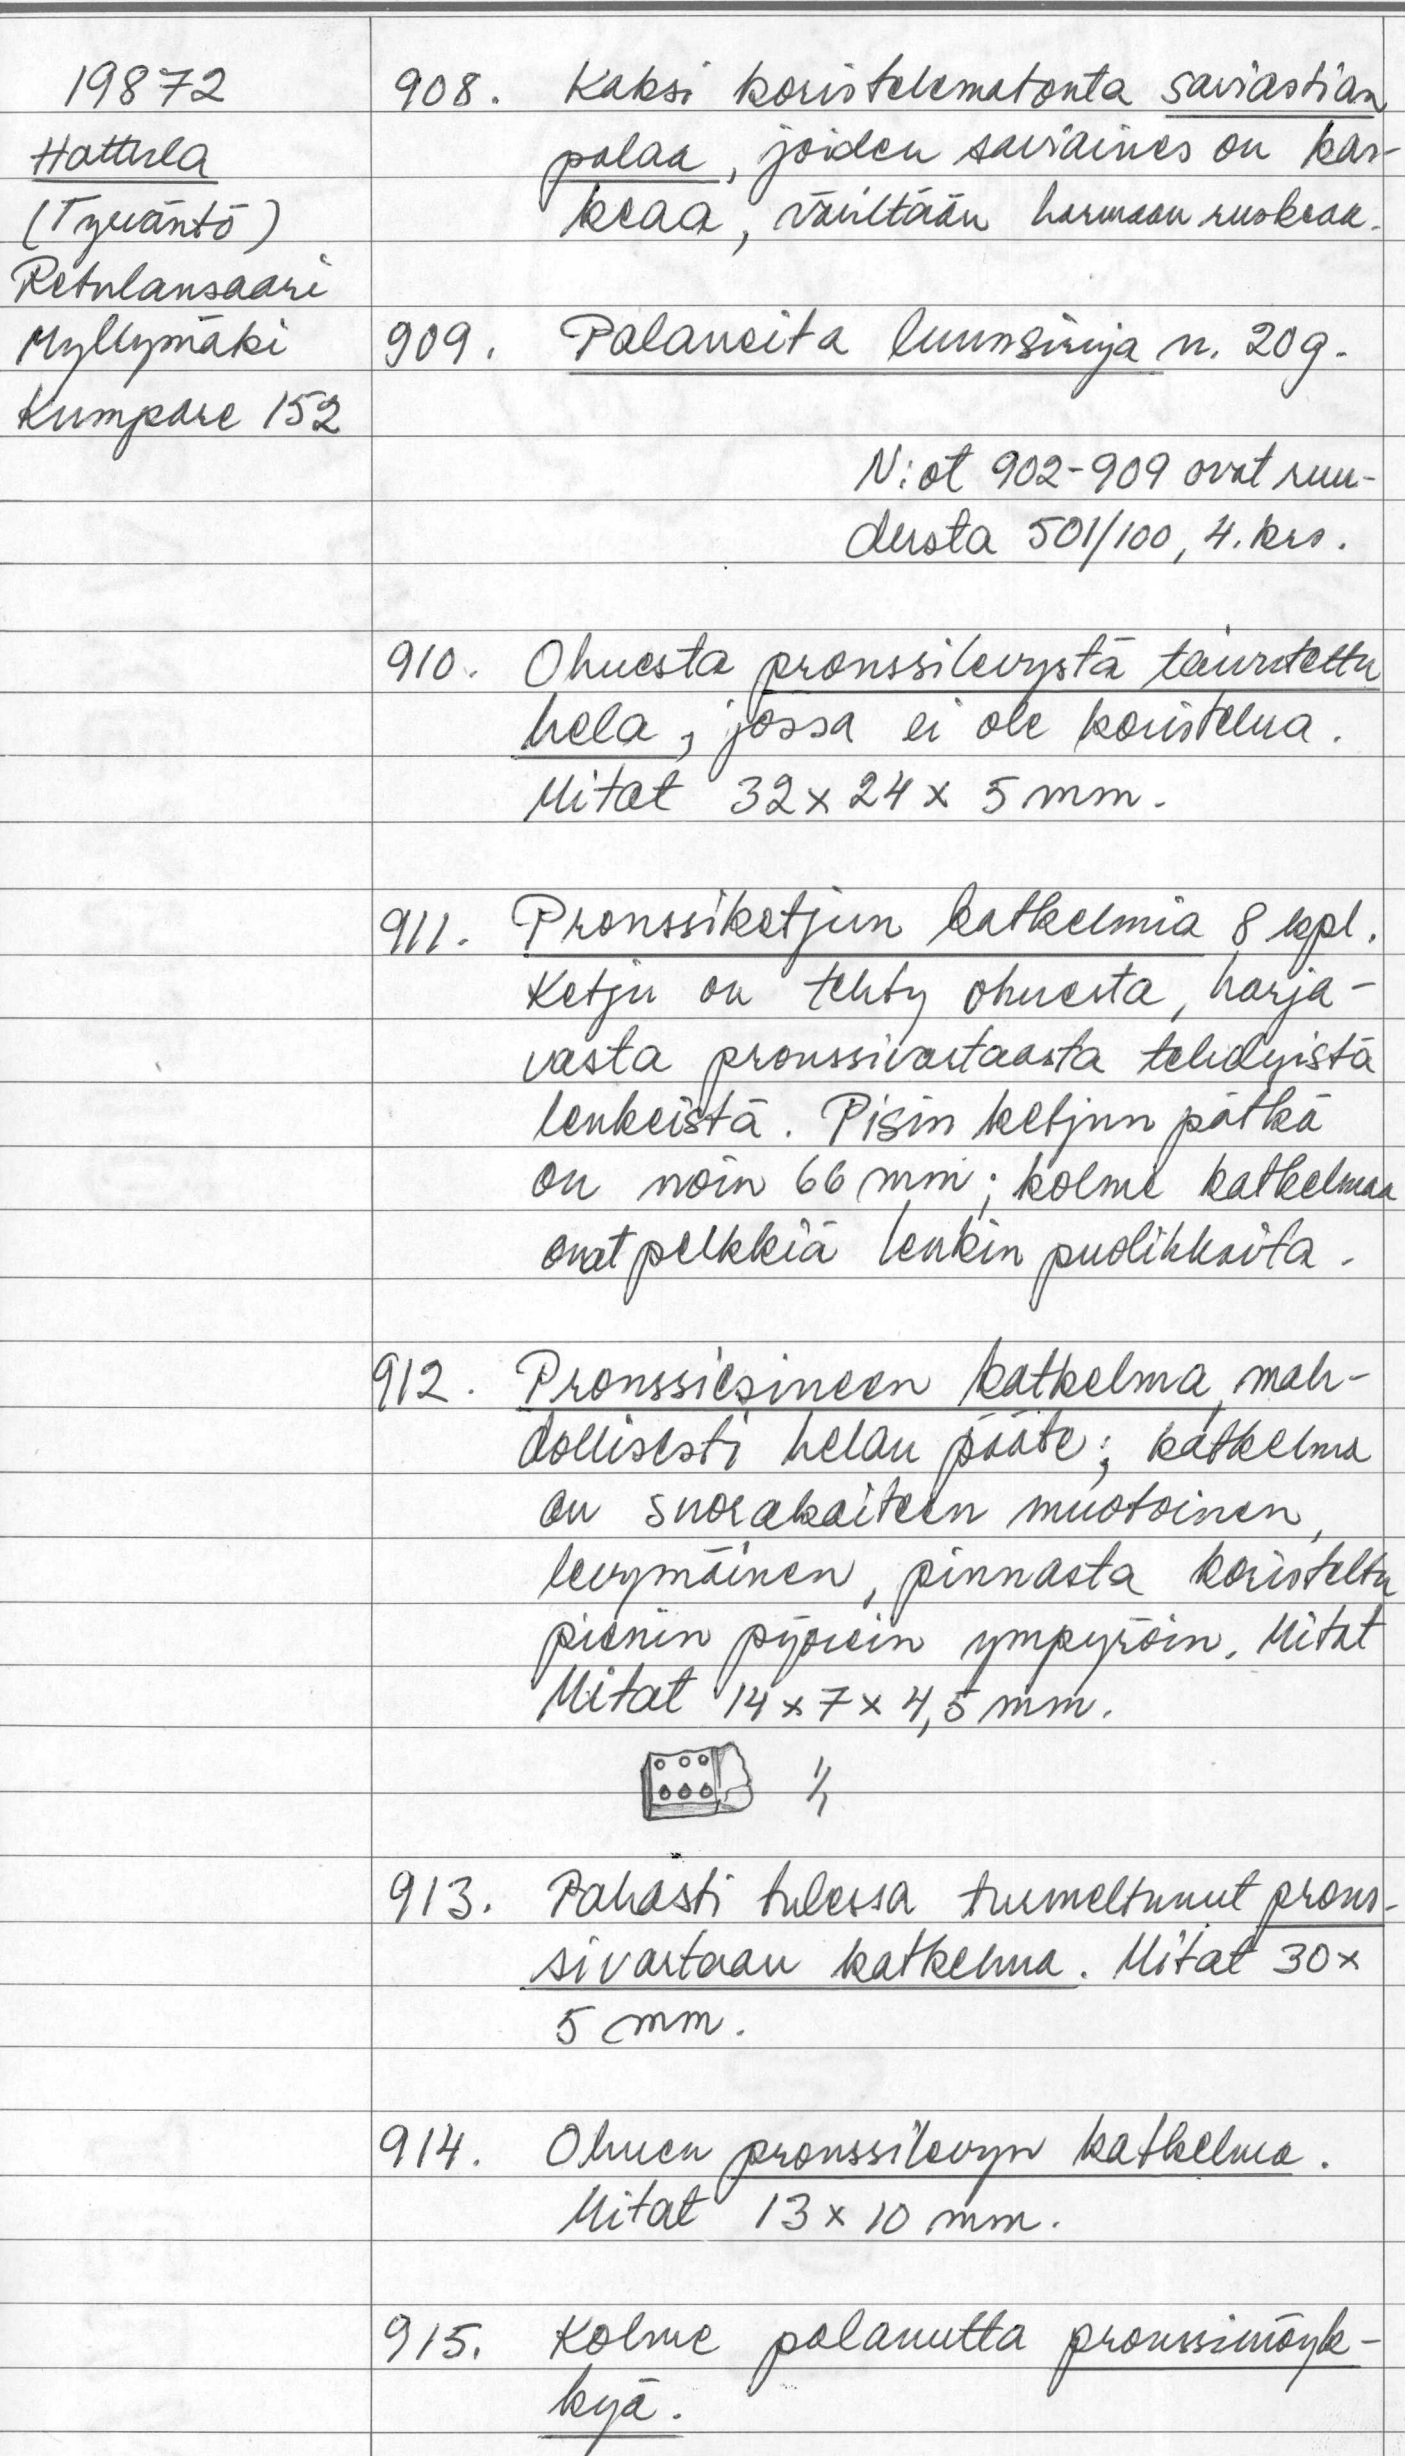 19872
Hattula
(Tyrväntö)
Retulansaari
Myllymäki
Kumpare 152
908. Kaksi koristelematonta saviastian
palaa, joiden saviaines on kar-
keaa, väriltään harmaan ruskeaa.
909. Palaneita luunsiruja n. 20 g.
N:ot 902-909 ovat ruu-
dusta 501/100, 4. krs.
910. Ohuesta pronssilevystä taivuteltu
hela, jossa ei ole koristelua.
Mitat 32 x 24 x 5 mm.
911. Pronssiketjun katkelmia 8 kpl.
Ketju on tehty ohuesta, harja-
vasta pronssivartaasta tehdyistä
lenkeistä. Pisin ketjun pätkä
on noin 66 mm; kolme katkelmaa
ovat pelkkiä lenkin puolikkaita.
912. Pronssiesineen katkelma, mah-
dollisesti helan pääte; katkelma
on suorakaiteen muotoinen,
levymäinen, pinnasta koristeltu
pienin pyörein ympyröin. Mitat
Mitat 14 x 7 x 4,5 mm.
1/1
913. Pahasti tulessa turmeltunut prons-
sivartaan katkelma. Mitat 30 x
5 mm.
914. Ohuen pronssilevyn katkelma.
Mitat 13 x 10 mm.
915. Kolme palanutta pronssimöyk-
kyä.